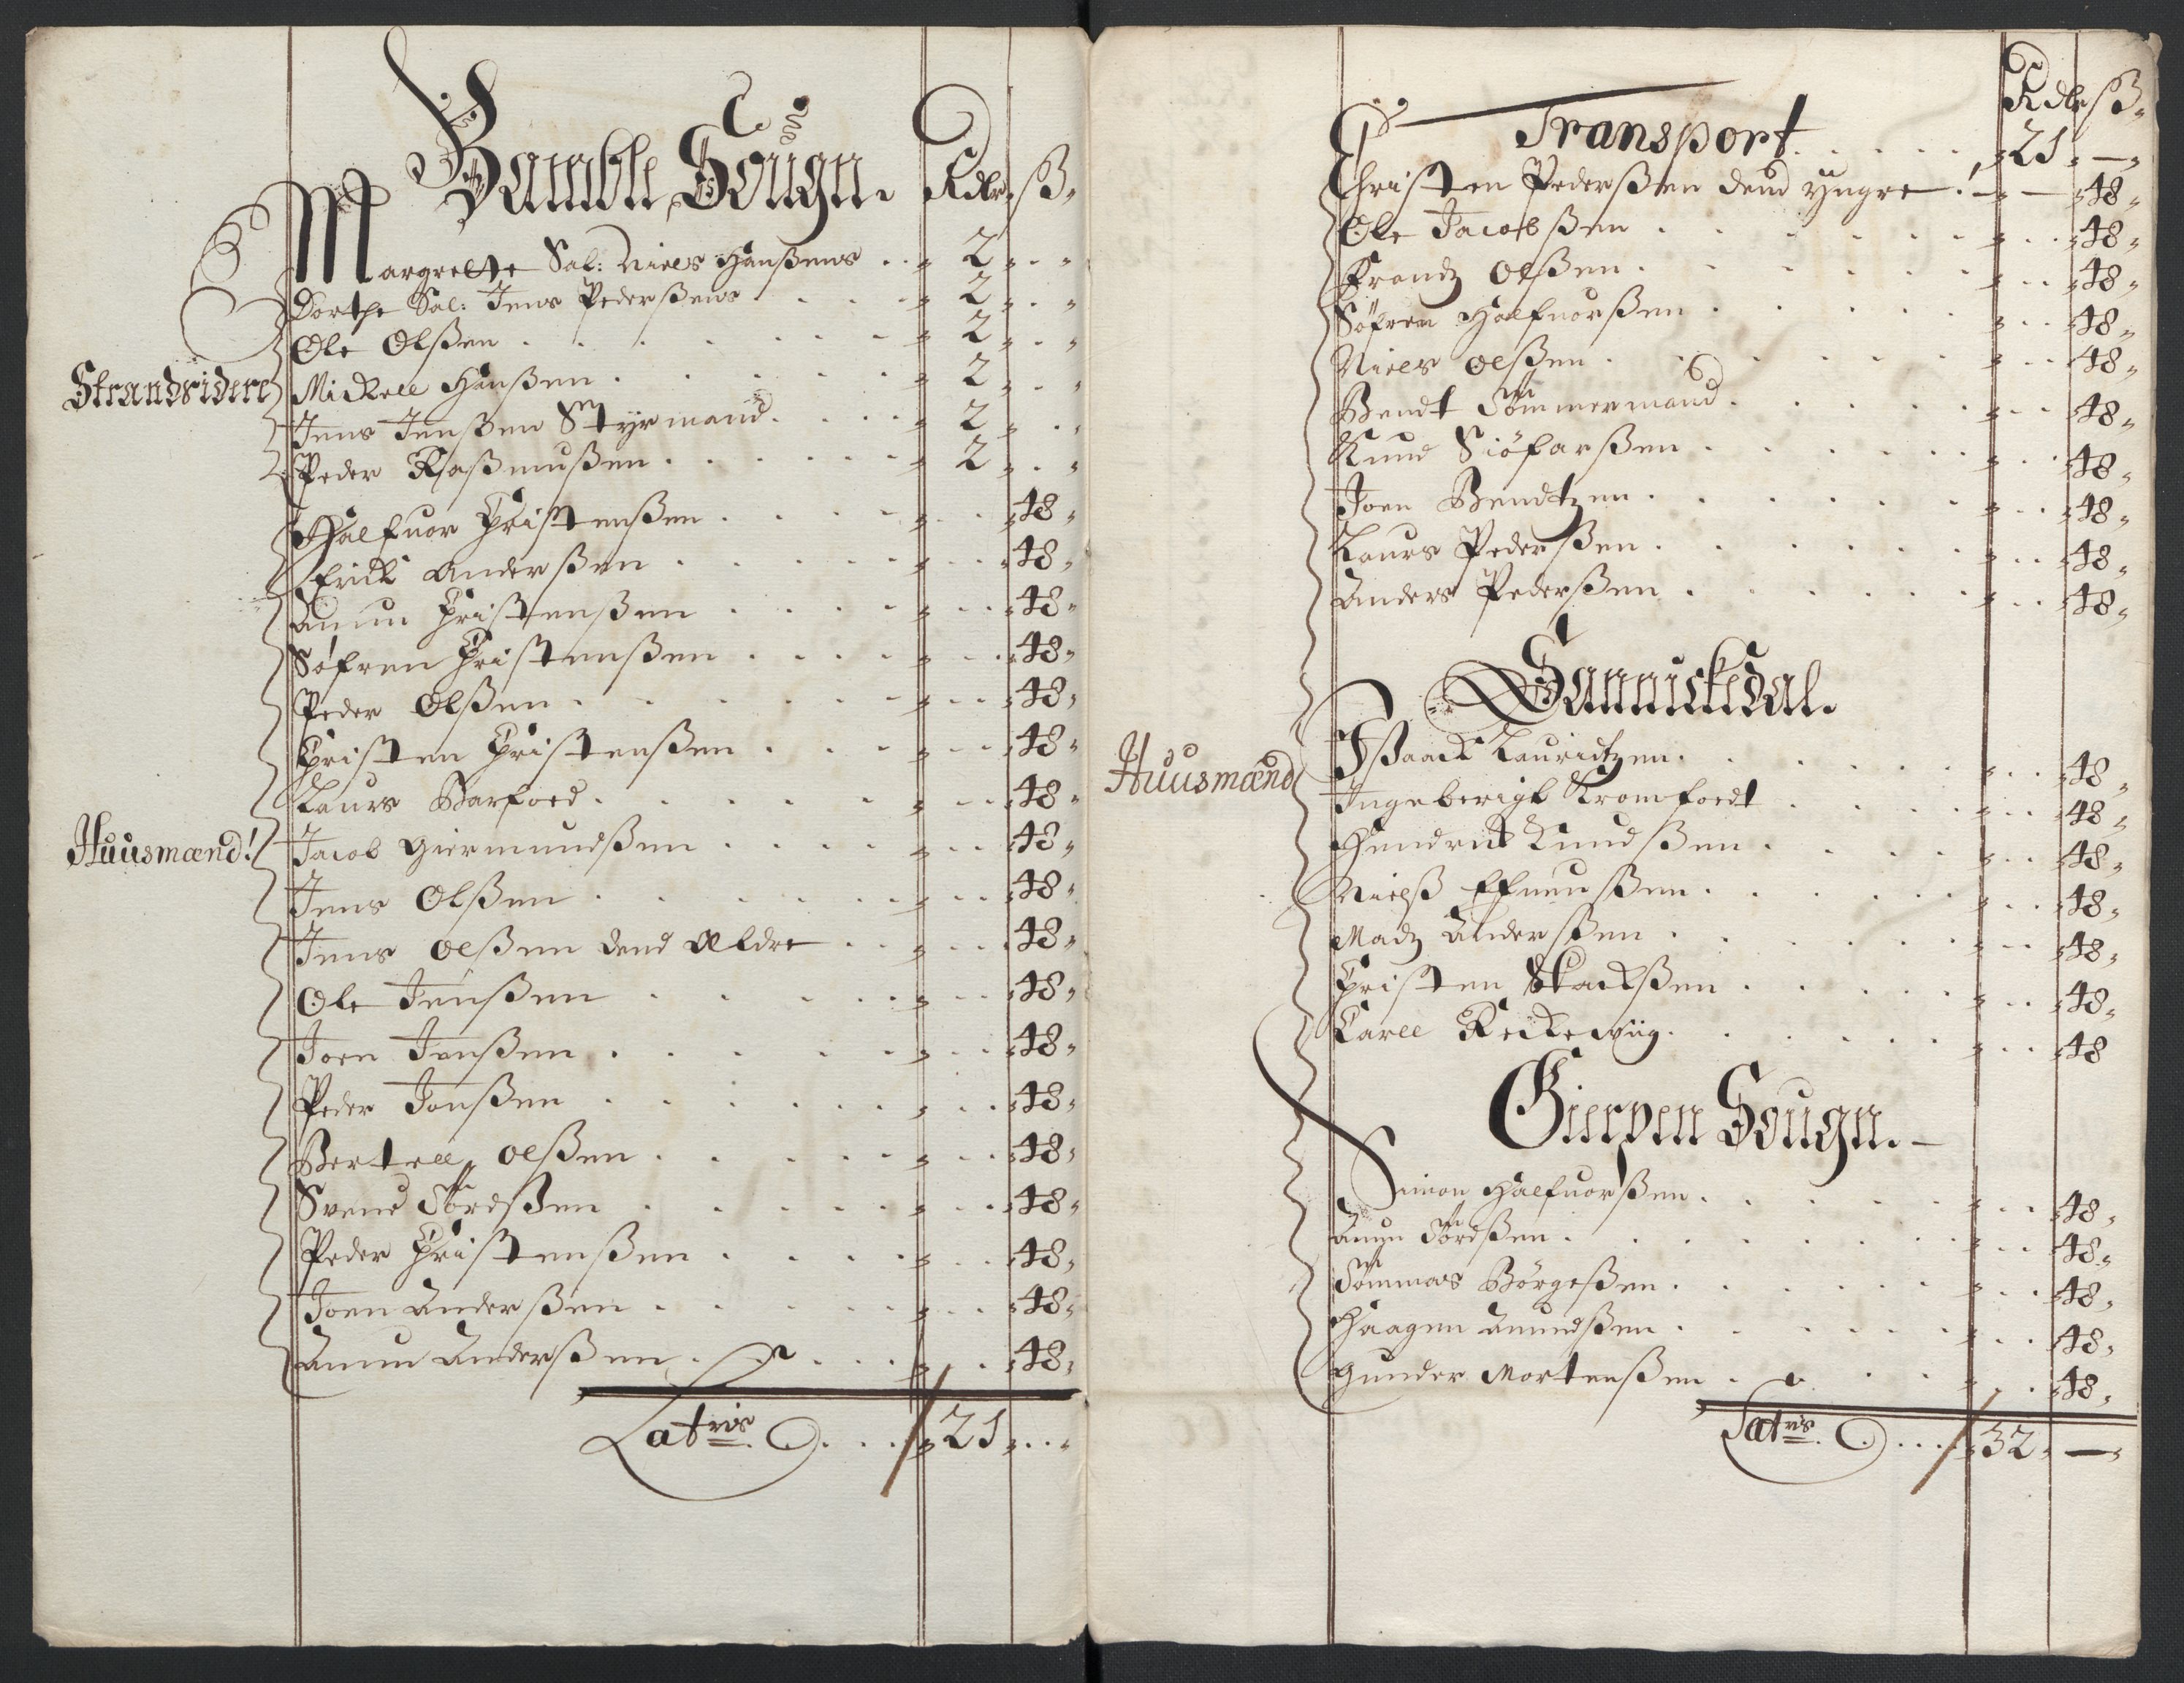 Bamble Sougn. Rdlr. ß.
Margrethe Sal: Niels Hanßens . . 2 . .
Dorthe Sal: Jens Pederßens . . . 2 . .
Ole Olßen . . . . . . 2 . .
Strandsidere Mickell Hanßen . . . . . 2 . .
Jens Jenßen Styrmand . . . . 2 . .
Peder Raßmußen . . . . . . 2 . .
Halfuor Christenßen . . . . 48
Erick Anderßen . . . . . 48
Amun Christenßen . . . . 48
Søfren Christenßen . . . . 48
Peder Olßen . . . . . . 48
Christen Christenßen . . . 48
Laurs Barfoed . . . . . 48
Huusmænd! Jacob Giermundßen . . . . 48
Jens Olßen . . . . . . 48
Jens Olßen dend Ældre . . 48
Ole Jenßen . . . . . 48
Joen Jenßen . . . . . 48
Peder Jonßen . . . . . . 48
Bertell Olßen . . . . . 48
Svend Tordßen . . . . . 48
Peder Christenßen . . . . 48
Joen Anderßen . . . . . 48
Amun Anderßen . . . . 48
Lateris . . . 21 . .
Rdlr ß.
Transport . . . . . 21 —
Christen Pederßen dend yngre ! — — 48
Ole Jacobßen . . . . . . 48
Frandz Olßen . . . . . . 48
Søfren Halfuorßen . . . . . 48
Niels Olßen . . . . . . 48
Bendt Tømmermand . . . . . 48
Knud Siøfarßen . . . . . . 48
Joen Bendtzen . . . . . . 48
Laurs Pederßen . . . . . . 48
Anders Pederßen . . . . . . 48
Sannickedal.
Huusmænd Ißaack Lauridtzen . . . . . . 48
Ingeberigt Kromfoedt . . . . 48
Hendrik Knudßen . . . . . 48
Nielß . . . . . 48
Madz Anderßen . . . . . . 48
Christen Stackßen . . . . . 48
Carll Reckewiig . . . . . . 48
Gierpen Sougn. —
Simon Halfuorßen . . . . . 48
Amun Tordßen . . . . . . 48
Tommas Børgeßen . . . . . 48
Haagen Amundßen . . . . . 48
Gunder Mortenßen . . . . . 48
Lateris . . . . 32 —